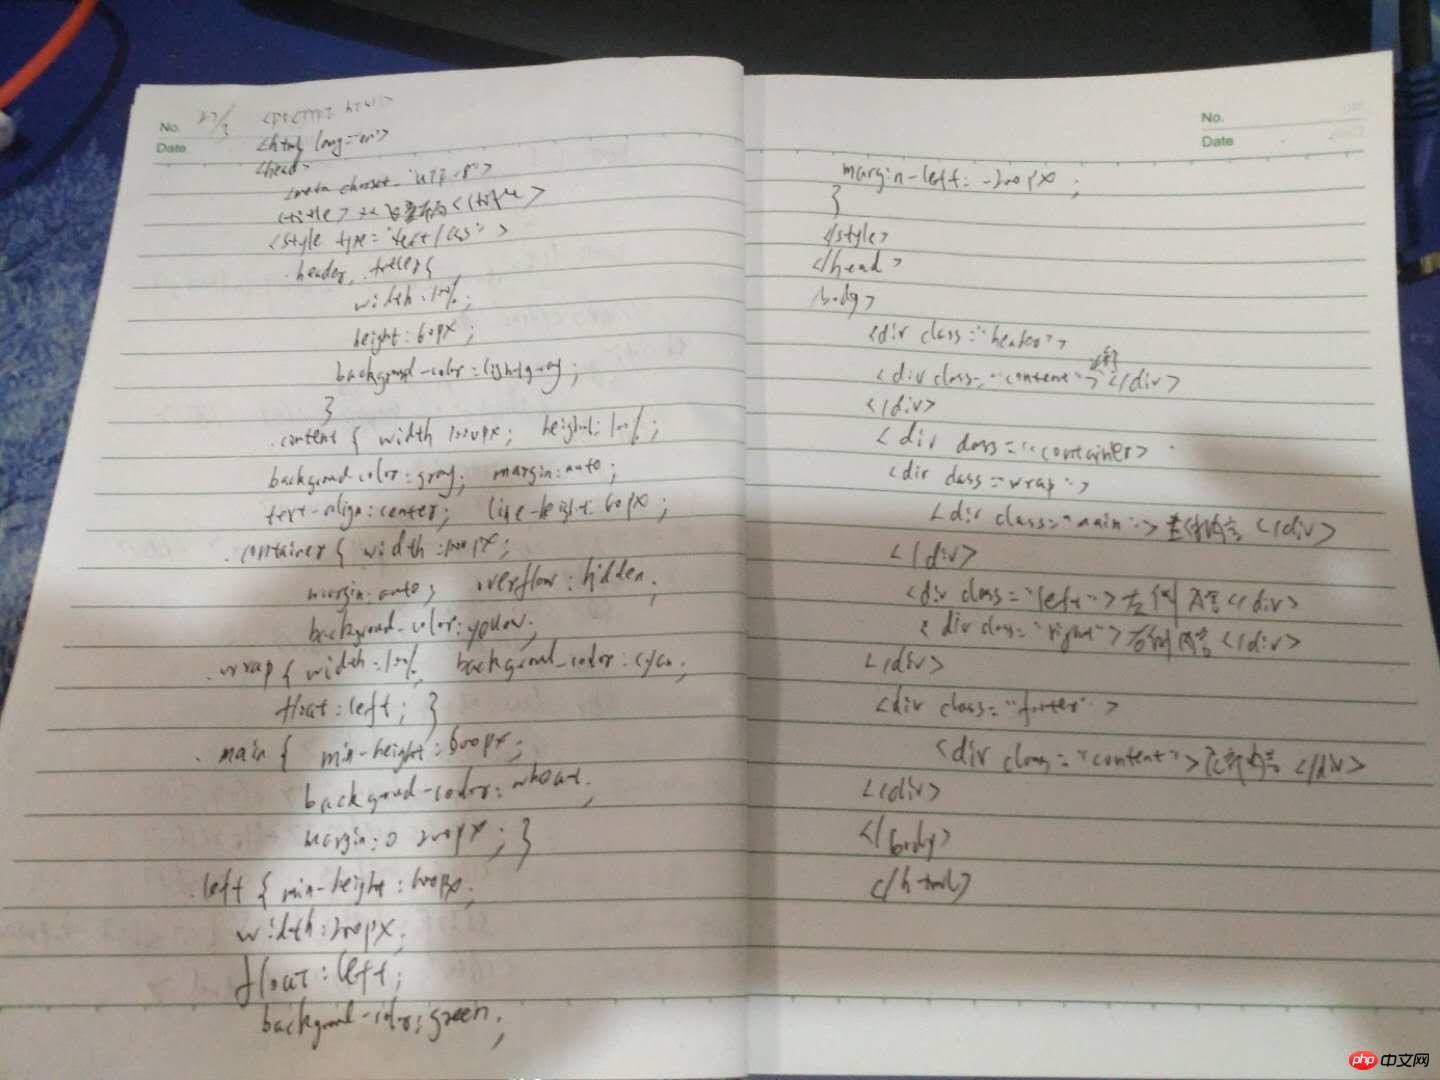 No.
27/3
<DOCTYPE html>
Date
<html lang="en">
<head>
<meta charset="UTF-8">
<title> 双飞翼布局 </title>
<style type="text/css">
.header, .footer{
width:100%;
height:60px;
background-color:lightgray;
}
.content { width 1000px; height:100%;
background-color:gray; margin:auto;
text-align:center; line-height:60px;
.container { width:1000px;
margin:auto; overflow:hidden;
background-color:yellow;
.wrap { width:100%; background-color:cyan;
float:left; }
.main { min-height:600px;
background-color:wheat;
margin:0 200px; }
.left { min-height:600px;
width:200px;
float:left;
background-color:green;
No.
Date
margin-left:-200px;
}
</style>
</head>
body>
<div class="header">
<div class="content"> </div>
</div>
<div class="container>
<div class="wrap">
<div class="main"> 主体内容 </div>
</div>
<div class="left"> 左侧内容</div>
<div class="right"> 右侧内容 </div>
</div>
<div class="footer">
<div class="content"> </div>
</div>
</body>
</html>
php 中文网